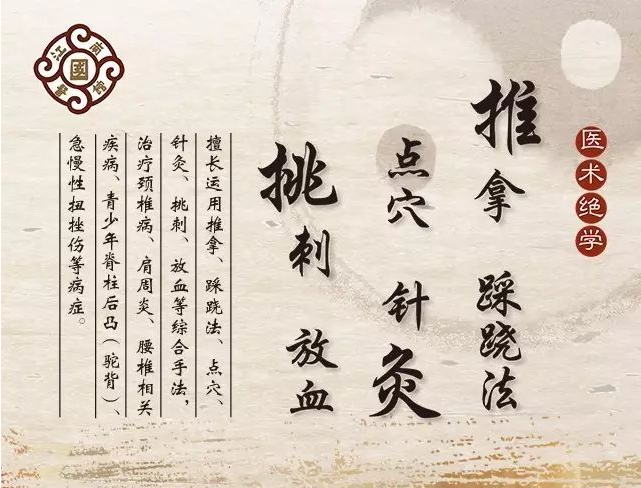 医术绝学
推拿 踩跷法
点穴 针灸
挑刺 放血
擅长运用推拿、踩跷法、点穴、
针灸、挑刺、放血等综合手法，
治疗颈椎病、肩周炎、腰椎相关
疾病、青少年脊柱后凸（驼背）、
急慢性扭挫伤等病症。
江南
國
醫館